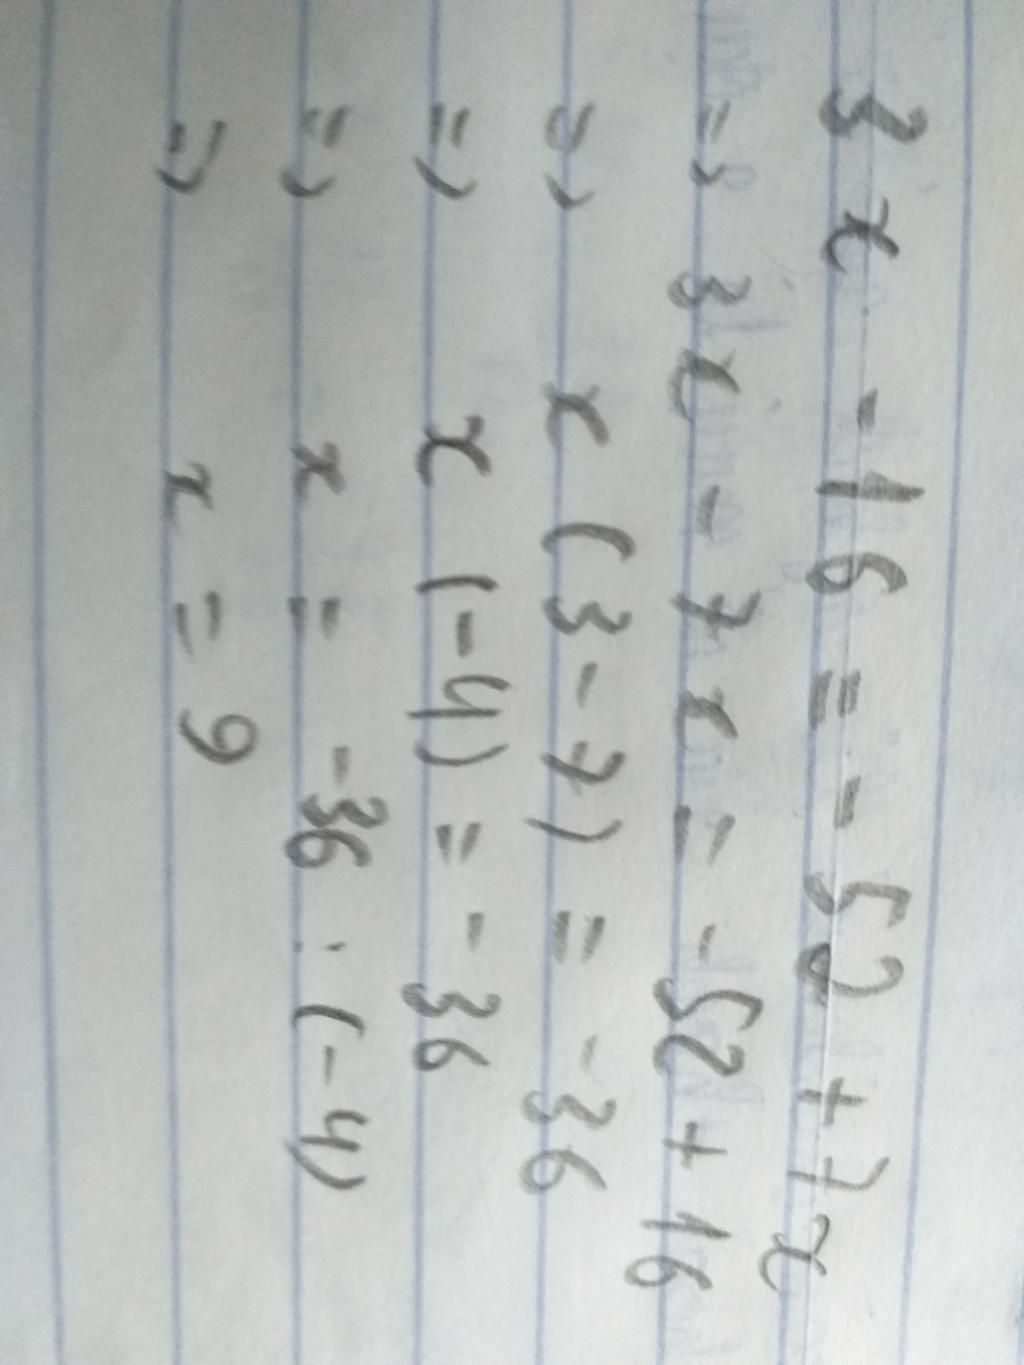 3x - 16 = - 52 + 7x
=> 3x - 7x = - 52 + 16
=> x (3 - 7) = - 36
=> x (-4) = - 36
=> x = -36 : (-4)
=> x = 9